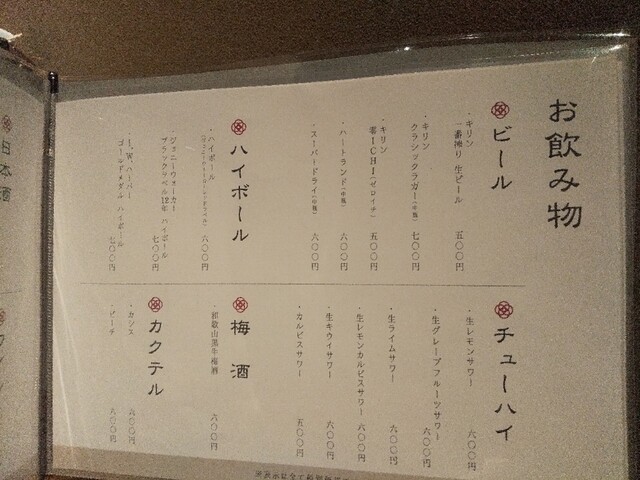 お飲み物
ビール
・キリン
一番搾り 生ビール 五〇〇円
・キリン
クラシックラガー(中瓶) 七〇〇円
・キリン
零ICHI(ゼロイチ) 五〇〇円
・ハートランド(中瓶) 六〇〇円
・スーパードライ(中瓶) 六〇〇円
ハイボール
・ハイボール 六〇〇円
・ジョニーウォーカー
ブラックラベル12年 ハイボール 七〇〇円
・I.W.ハーパー
ゴールドメダル ハイボール 七〇〇円
チューハイ
・生レモンサワー 六〇〇円
・生グレープフルーツサワー 六〇〇円
・生ライムサワー 六〇〇円
・生レモンカルピスサワー 六〇〇円
・生キウイサワー 六〇〇円
・カルピスサワー 五〇〇円
梅酒
・和歌山黒牛梅酒 六〇〇円
カクテル
・カシス 六〇〇円
・ピーチ 六〇〇円
日本酒